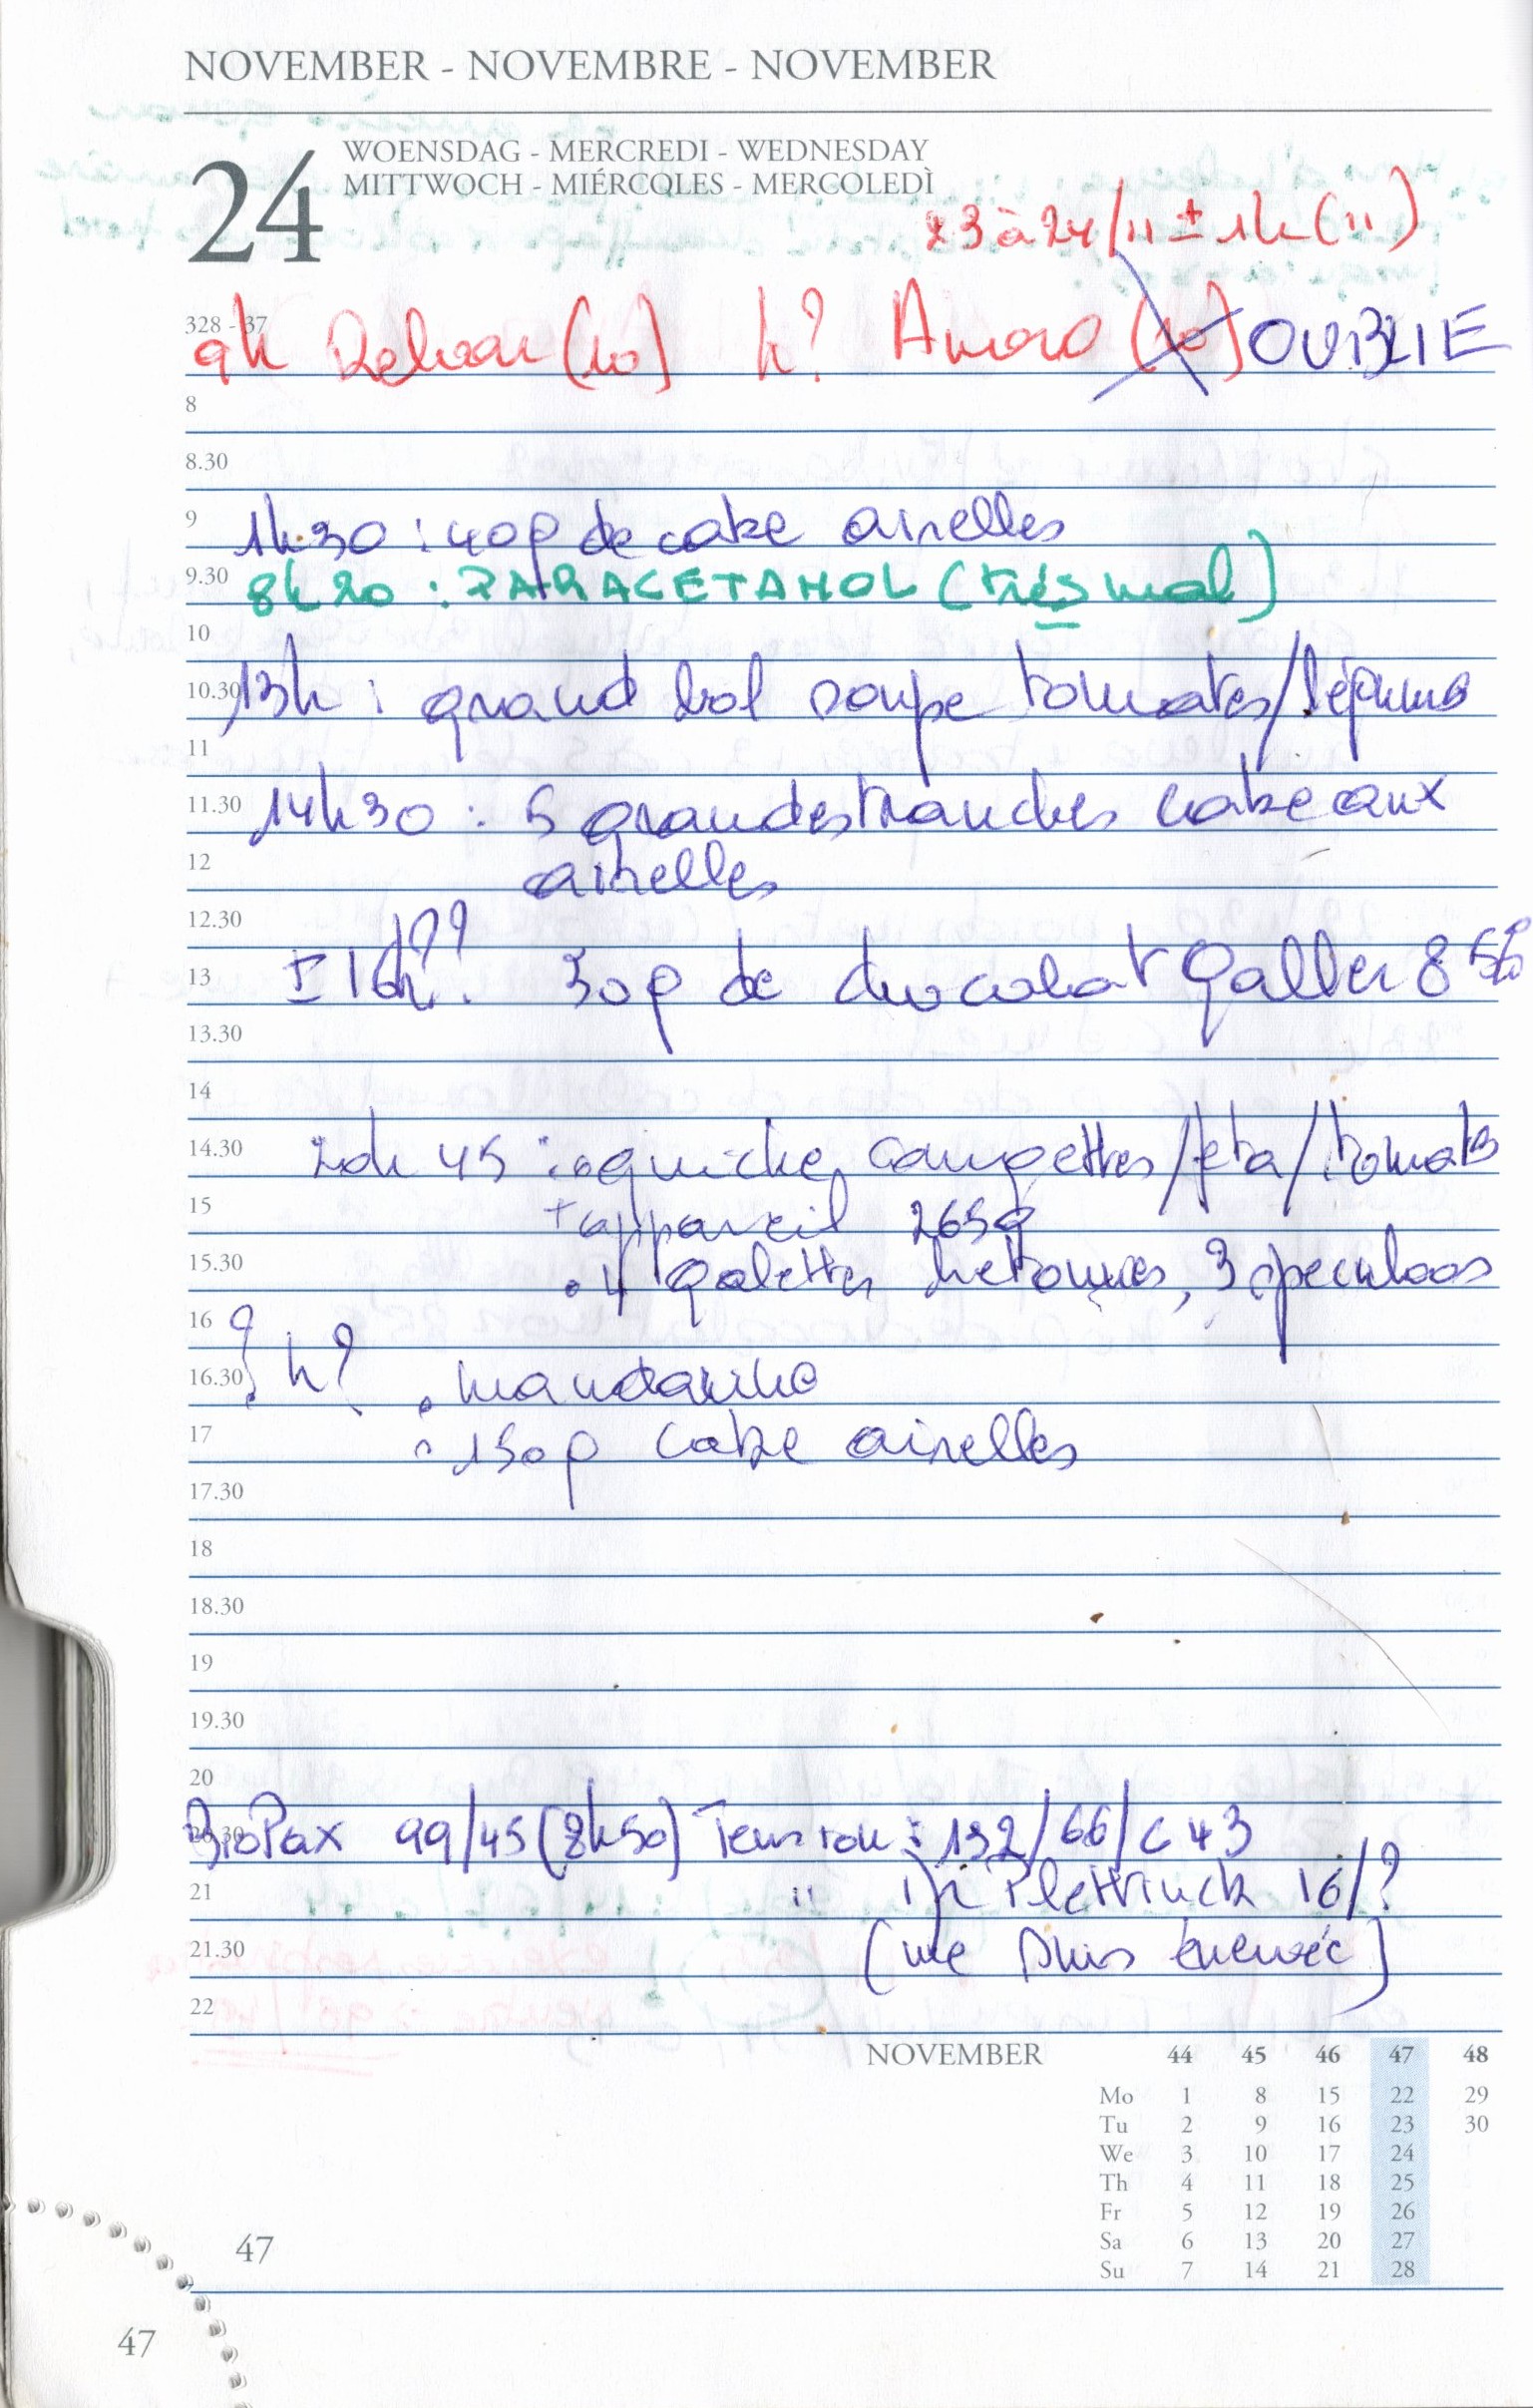 NOVEMBER - NOVEMBRE - NOVEMBER
24
WOENSDAG - MERCREDI - WEDNESDAY
MITTWOCH - MIÉRCOLES - MERCOLEDÌ
23 à 24/11 ± 1h (11)
328 - 37
9h (10) h? (10) OUBLIE
8
8.30
9 1h30 : 40g de cake airelles
9.30 8h20 : PARACETAMOL (très mal)
10
10.30 13h : grand bol soupe tomates/légumes
11
11.30 14h30 : 5 grandes tranches cake aux
12 airelles
12.30
13 ± 16h?? 30g de chocolat Galler 85%
13.30
14
14.30 20h45 : quiche courgettes/feta/tomates
15 + appareil 265g
15.30 . 4 galettes bretonnes, 3 speculoos
16
16.30 ? h? . mandarine
17 . 150g cake airelles
17.30
18
18.30
19
19.30
20
20.30 BioPax 99/45 (8h50) Tension : 132/66/C43
21 " Dr Plettinck 16/?
21.30 (me suis énervée)
22
NOVEMBER 44 45 46 47 48
Mo 1 8 15 22 29
Tu 2 9 16 23 30
We 3 10 17 24
Th 4 11 18 25
Fr 5 12 19 26
Sa 6 13 20 27
Su 7 14 21 28
47
47